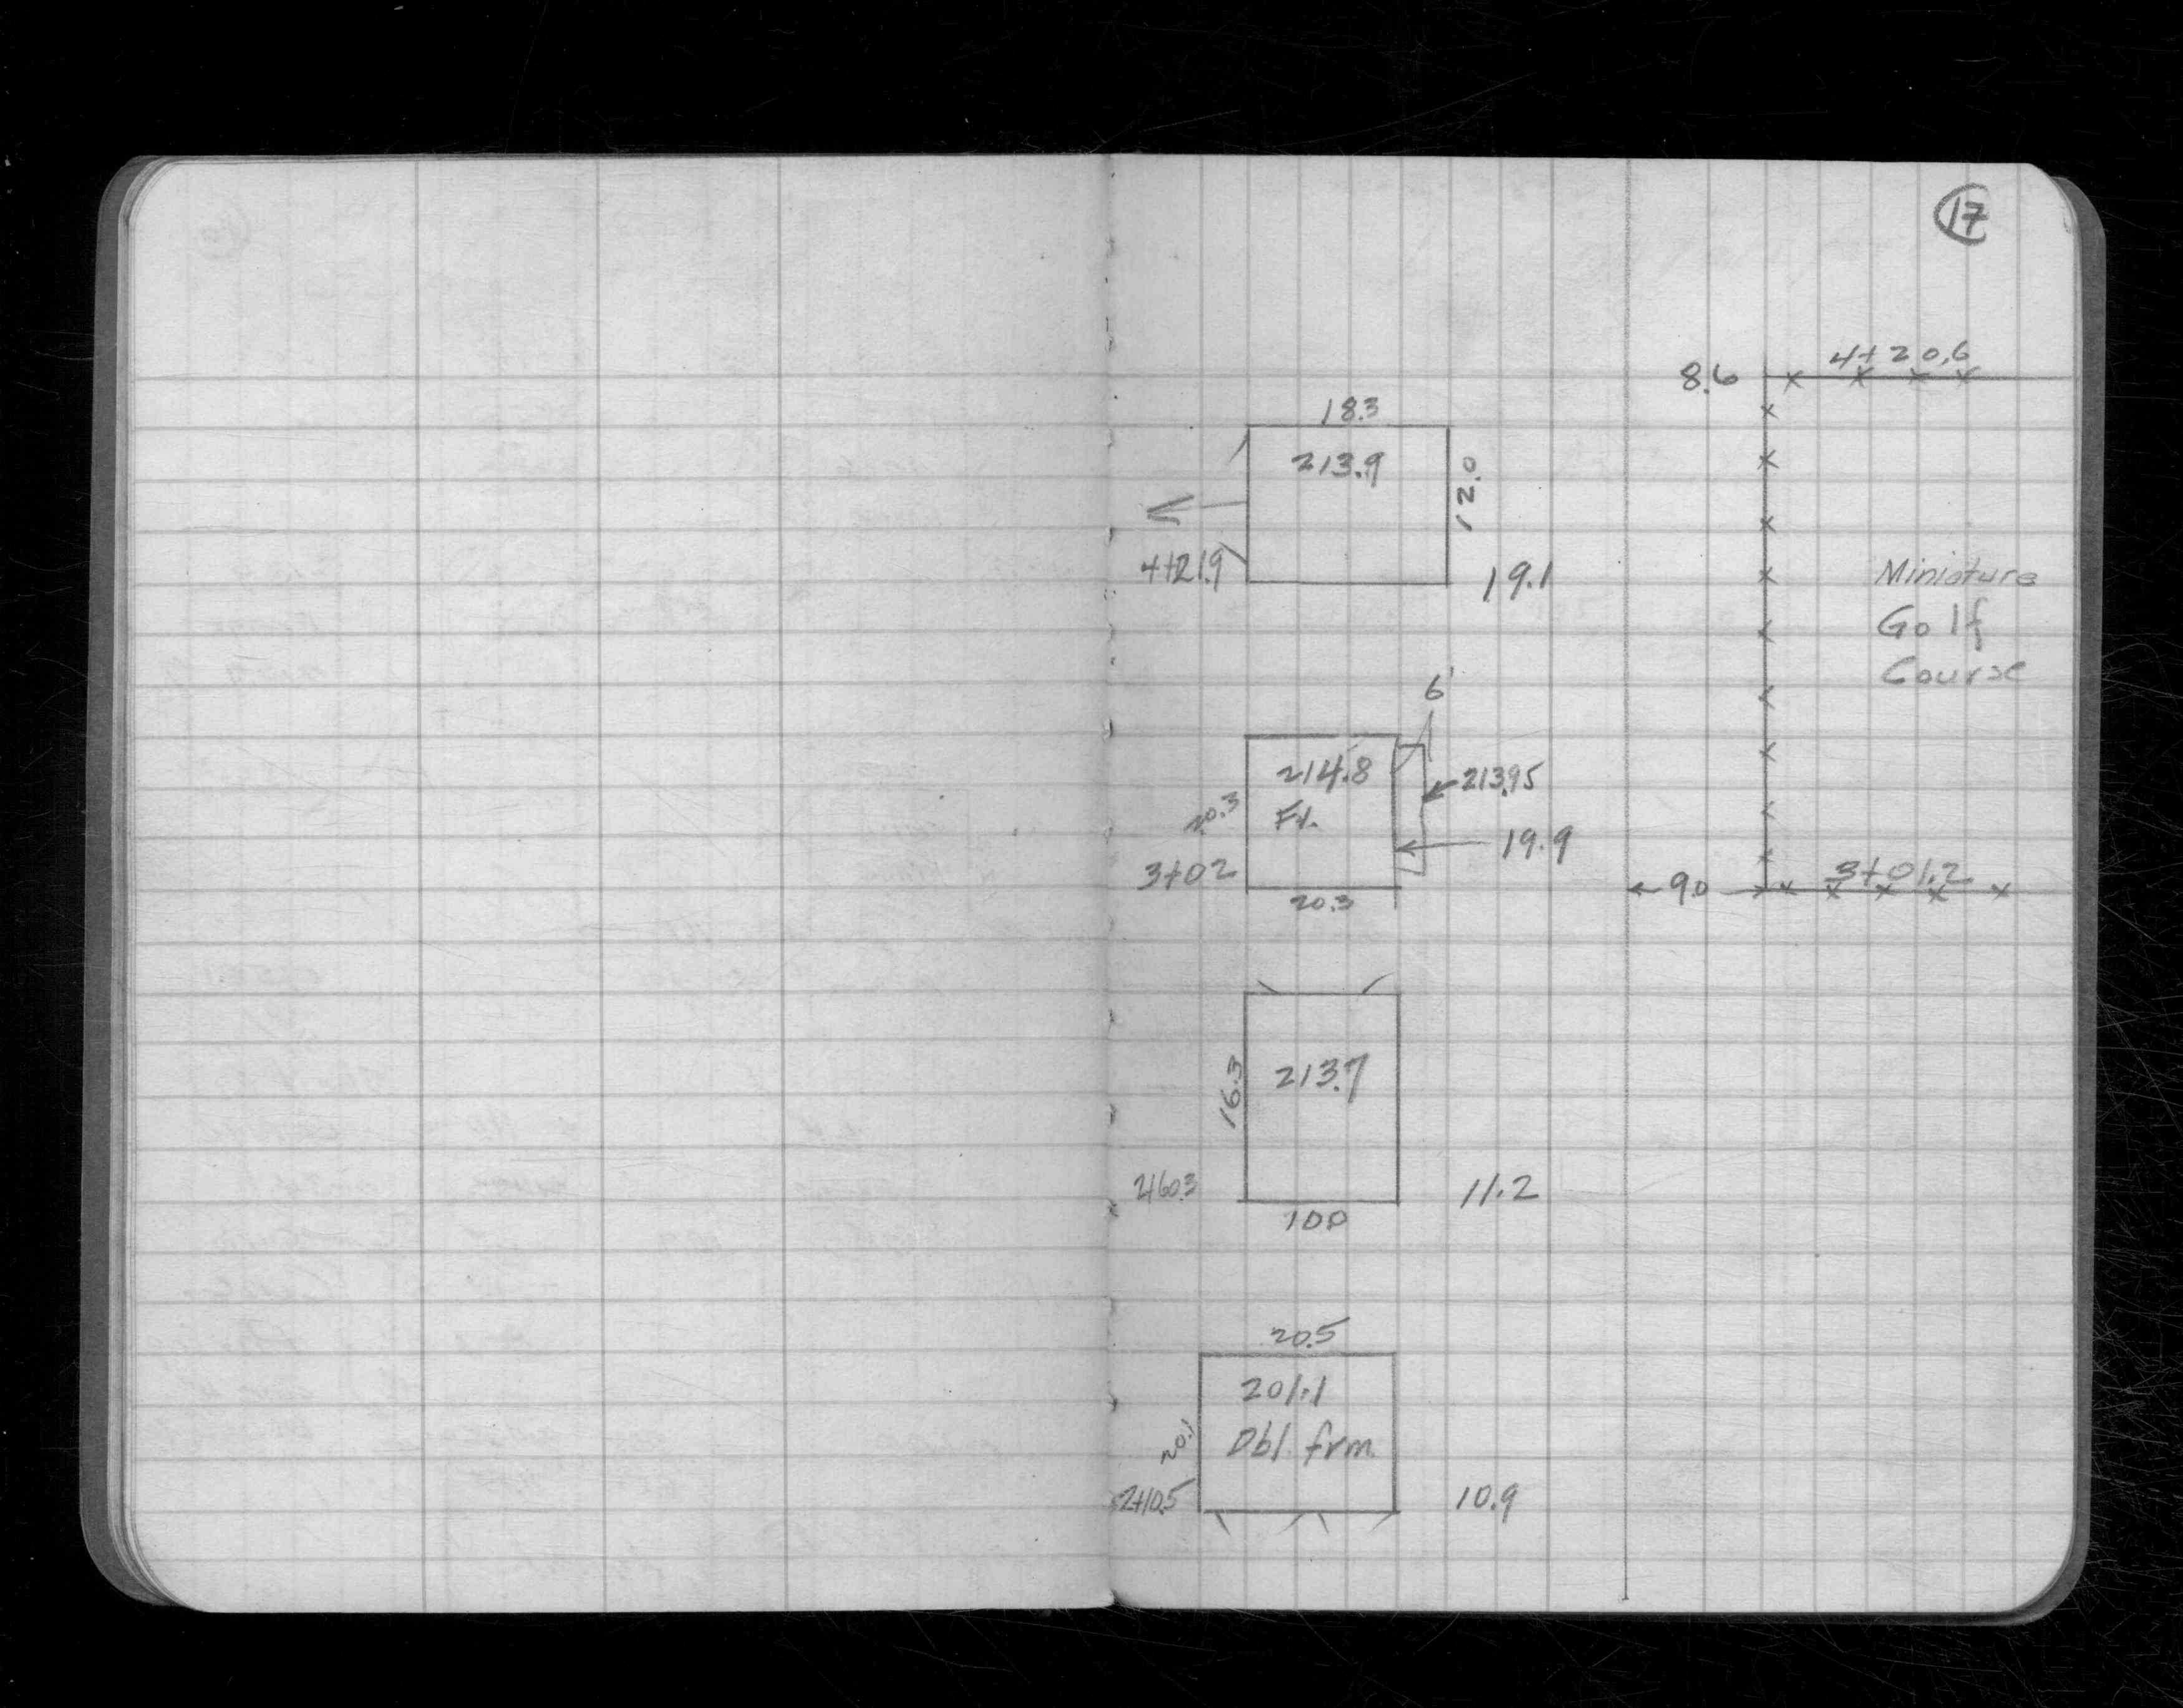 17
4+20.6
8.6
18.3
213.9
12.0
4+21.9
19.1
Miniature
Golf
Course
6'
214.8
Fl.
213.95
20.3
19.9
3+02
20.3
9.0
3+01.2
213.7
16.3
2+60.3
11.2
10.0
20.5
201.1
Dbl. frm.
20.1
2+10.5
10.9